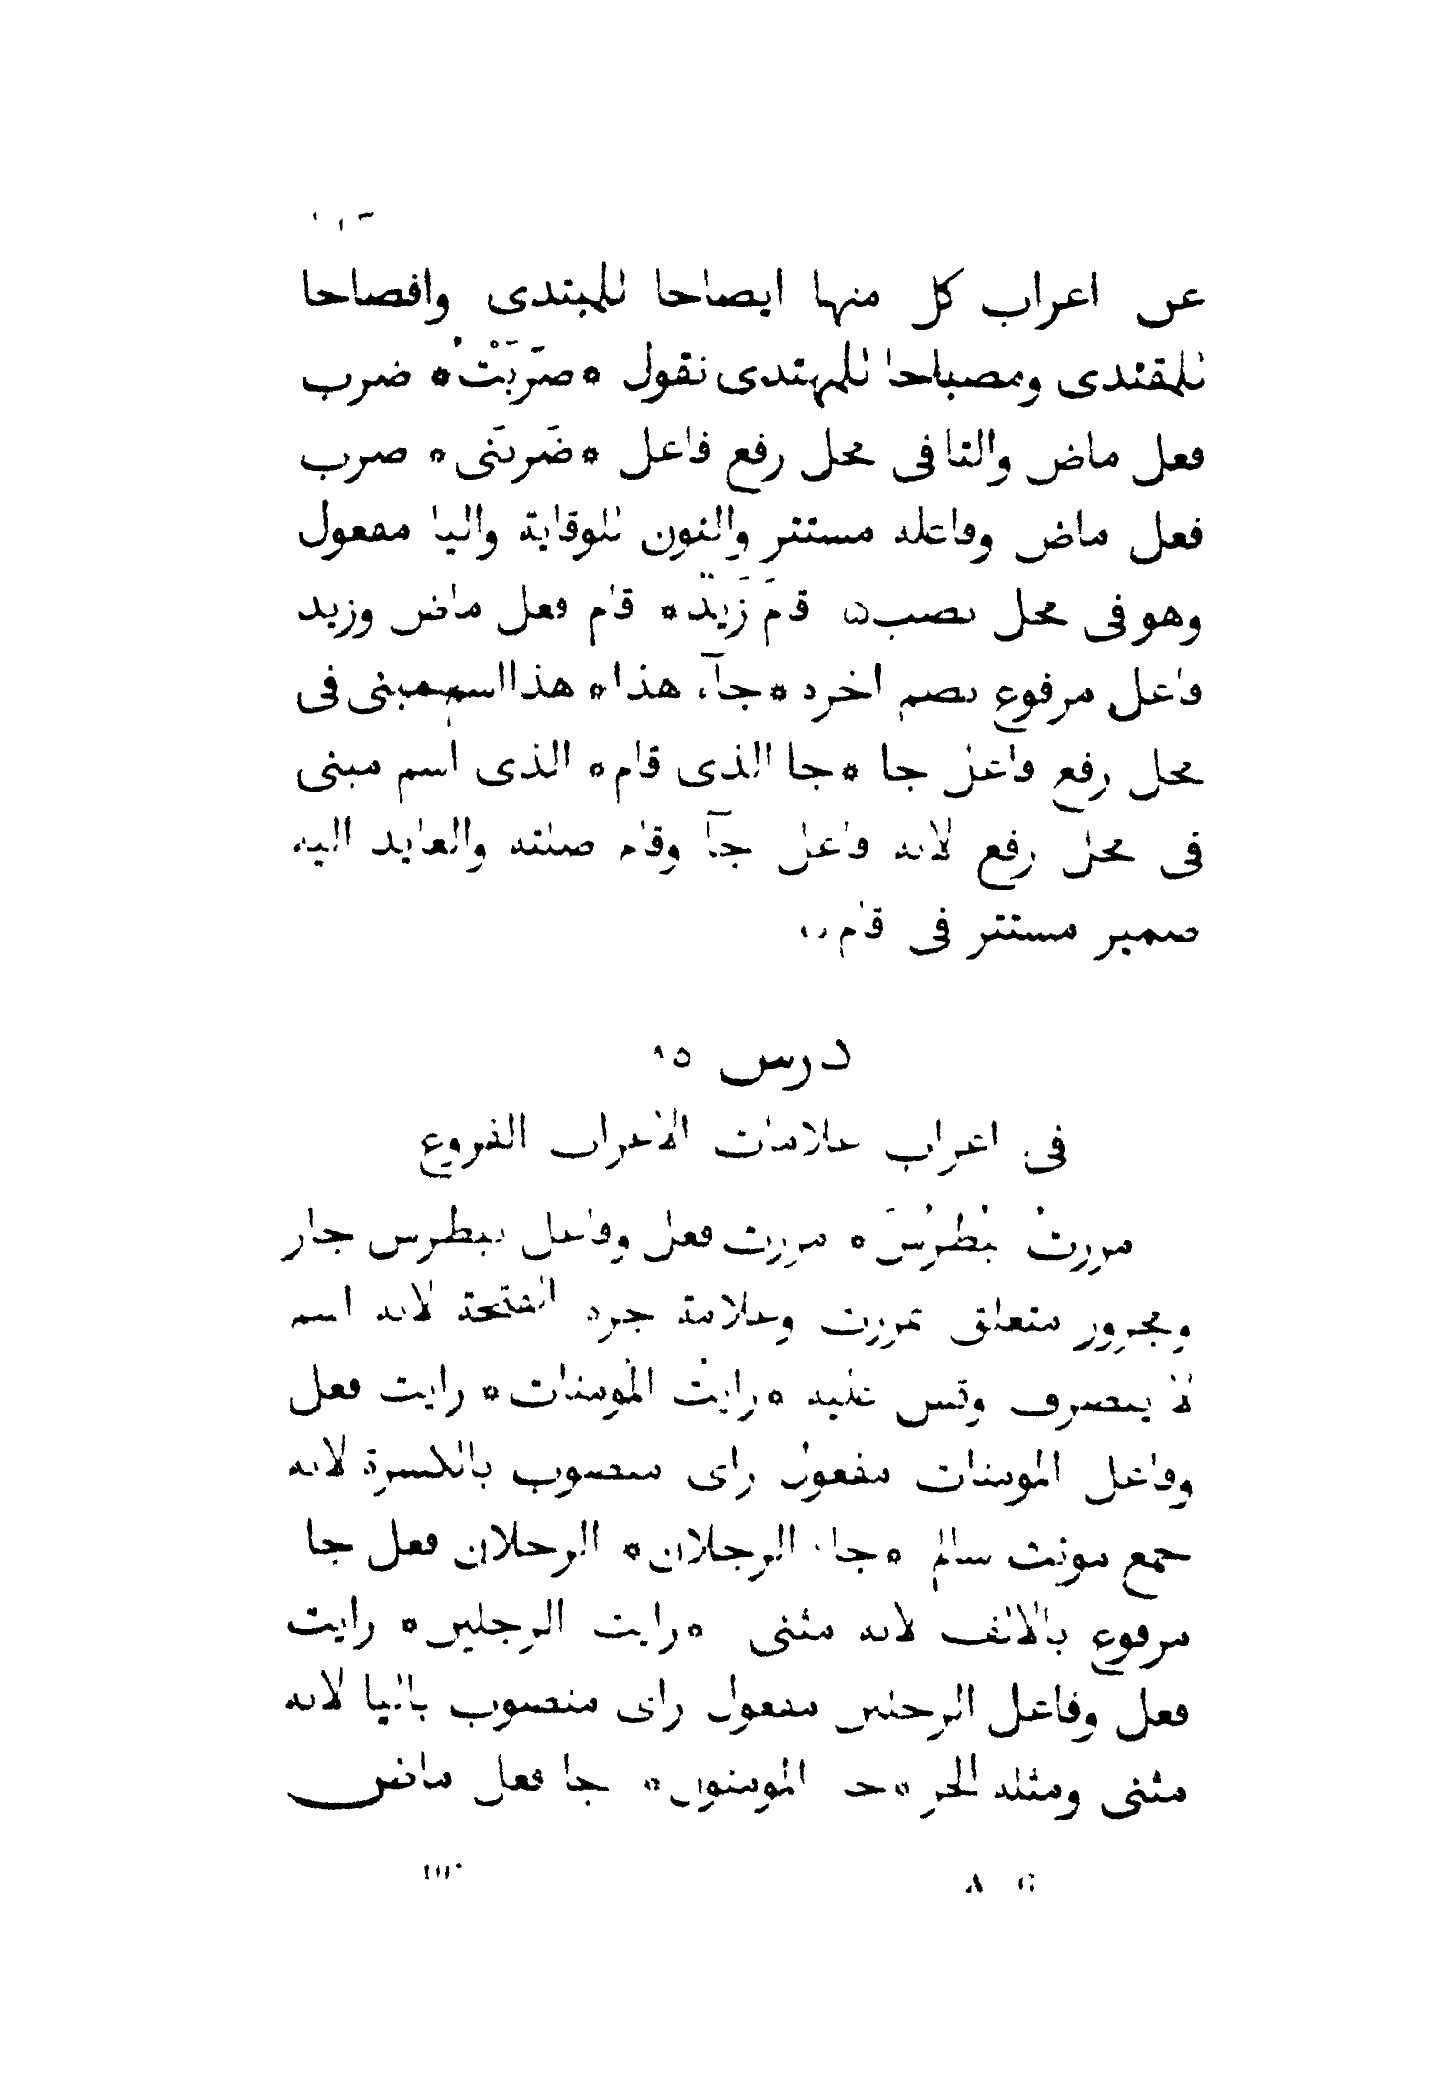 عن اعراب كل منها ايضاحا للمبتدى وافصاحا
للمقتدى ومصباحا للمهتدى نقول * ضَرَبْتُ * ضرب
فعل ماض والتا فى محل رفع فاعل * ضَرَبَنى * ضرب
فعل ماض وفاعله مستتر والنون للوقاية واليا مفعول
وهو فى محل نصب * قَامَ زَيْدٌ * قام فعل ماض وزيد
فاعل مرفوع بضم اخره * جآء هذا * هذا اسم مبنى فى
محل رفع فاعل جا * جا الذى قام * الذى اسم مبنى
فى محل رفع لانه فاعل جآ وقام صلته والعايد اليه
ضمير مستتر فى قام
درس
فى اعراب علامات الاعراب الفروع
مررتُ ببُطرُسَ * مررت فعل وفاعل ببطرس جار
ومجرور متعلق بمررت وعلامة جره الفتحة لانه اسم
لا ينصرف وقس عليه * رايتُ المُومنات * رايت فعل
وفاعل المومنات مفعول راى منصوب بالكسرة لانه
جمع مونث سالم * جا الرجلان * الرجلان فعل جا
مرفوع بالالف لانه مثنى * رايت الرجلين * رايت
فعل وفاعل الرجلين مفعول راى منصوب باليا لانه
مثنى ومثله الجر * جا المومنون * جا فعل ماض